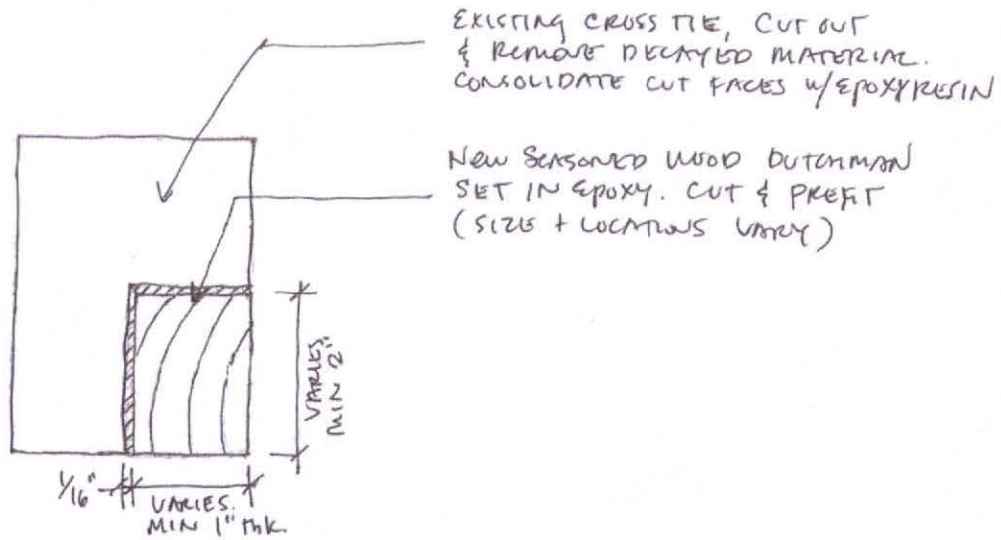 EXISTING CROSS TIE, CUT OUT
& REMOVE DECAYED MATERIAL.
CONSOLIDATE CUT FACES W/EPOXY RESIN
NEW SEASONED WOOD DUTCHMAN
SET IN EPOXY. CUT & PREFIT
(SIZE + LOCATIONS VARY)
VARIES.
MIN 2"
1/16"
VARIES.
MIN 1" THK.